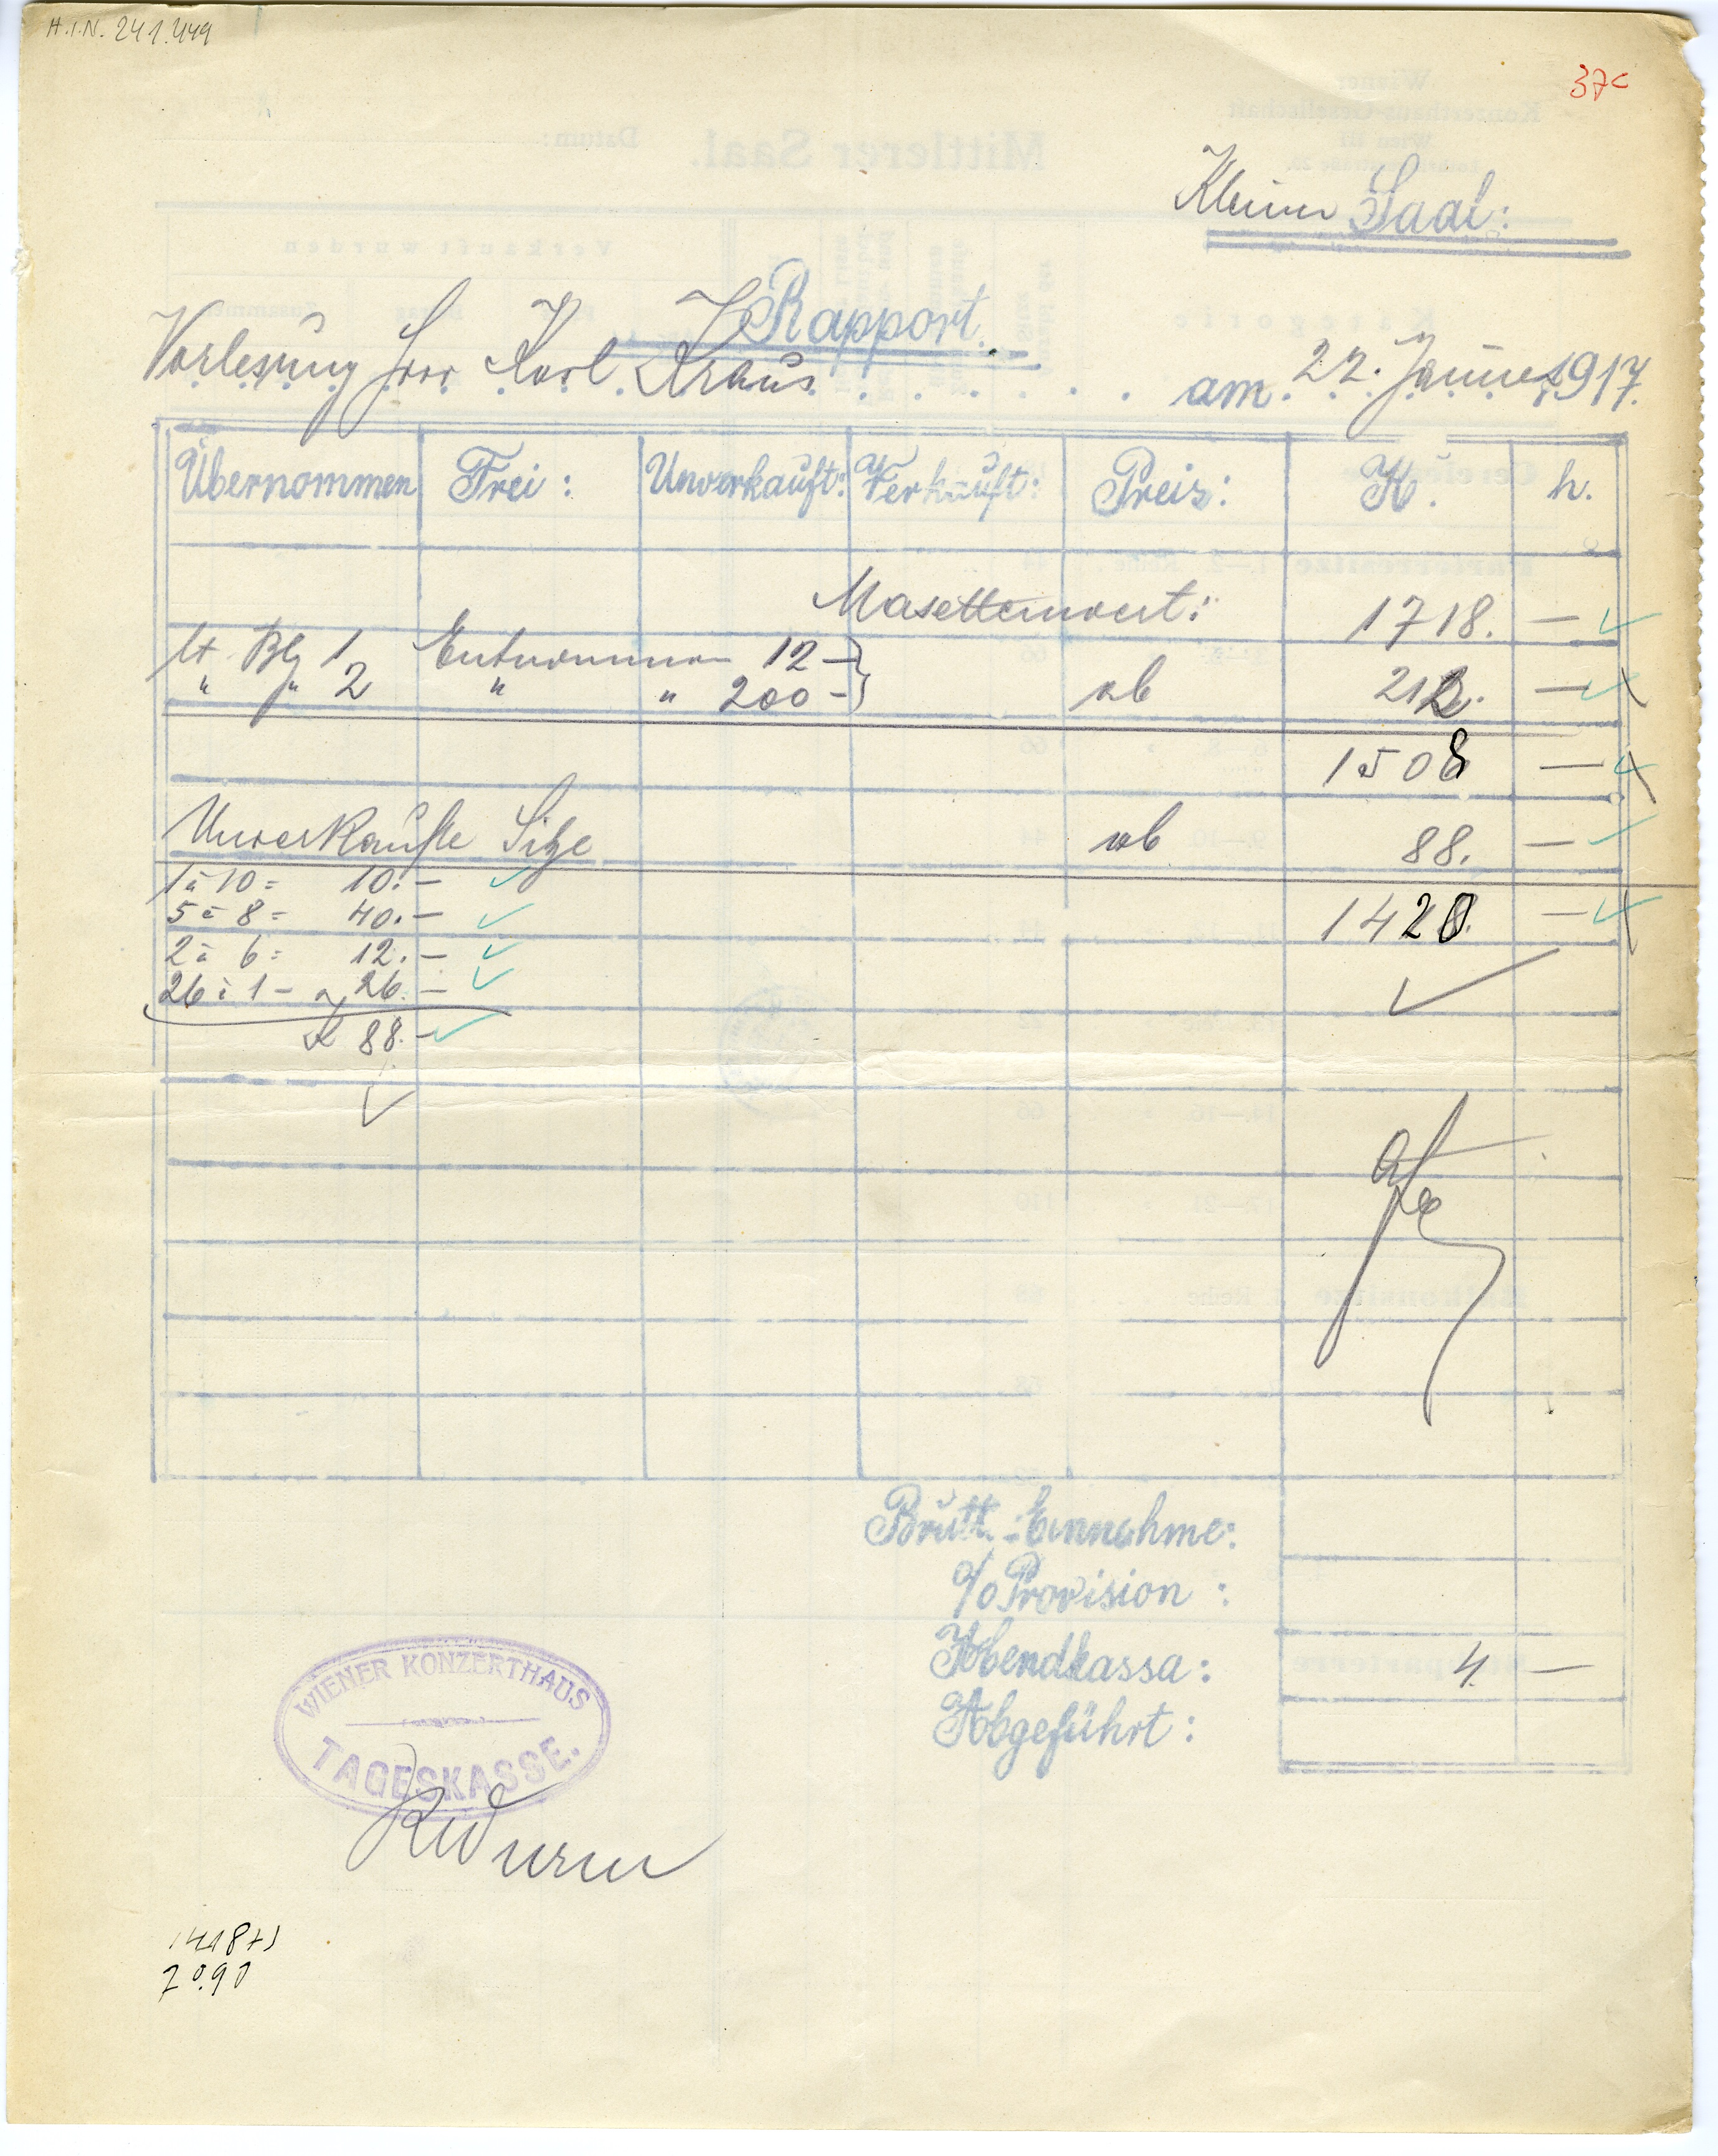 H.I.N. 241.449
37c
Kleiner Saal:
Rapport
Vorlesung Herr Karl Kraus am 22. Jänner 1917.
Übernommen Frei: Unverkauft: Verkauft: Preis: K. h.
Masettenwert: 1718. —
lt. Blg 1 Entnommen 12 —
" " 2 " " 200 — ab 212. —
1508 —
Unverkaufte Sitze ab 88. —
1 à 10 = 10. —
5 à 8 = 40. — 1420 —
2 à 6 = 12. —
26 à 1 — 26. —
K 88. —
Brutto-Einnahme:
% Provision :
Abendkassa: 4. —
Abgeführt :
WIENER KONZERTHAUS
TAGESKASSE.
RWurm